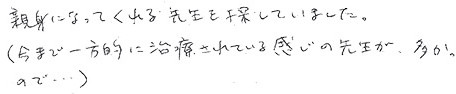 親身になってくれる先生を探していました。
(今まで一方的に治療されている感じの先生が、多か。
ので…)